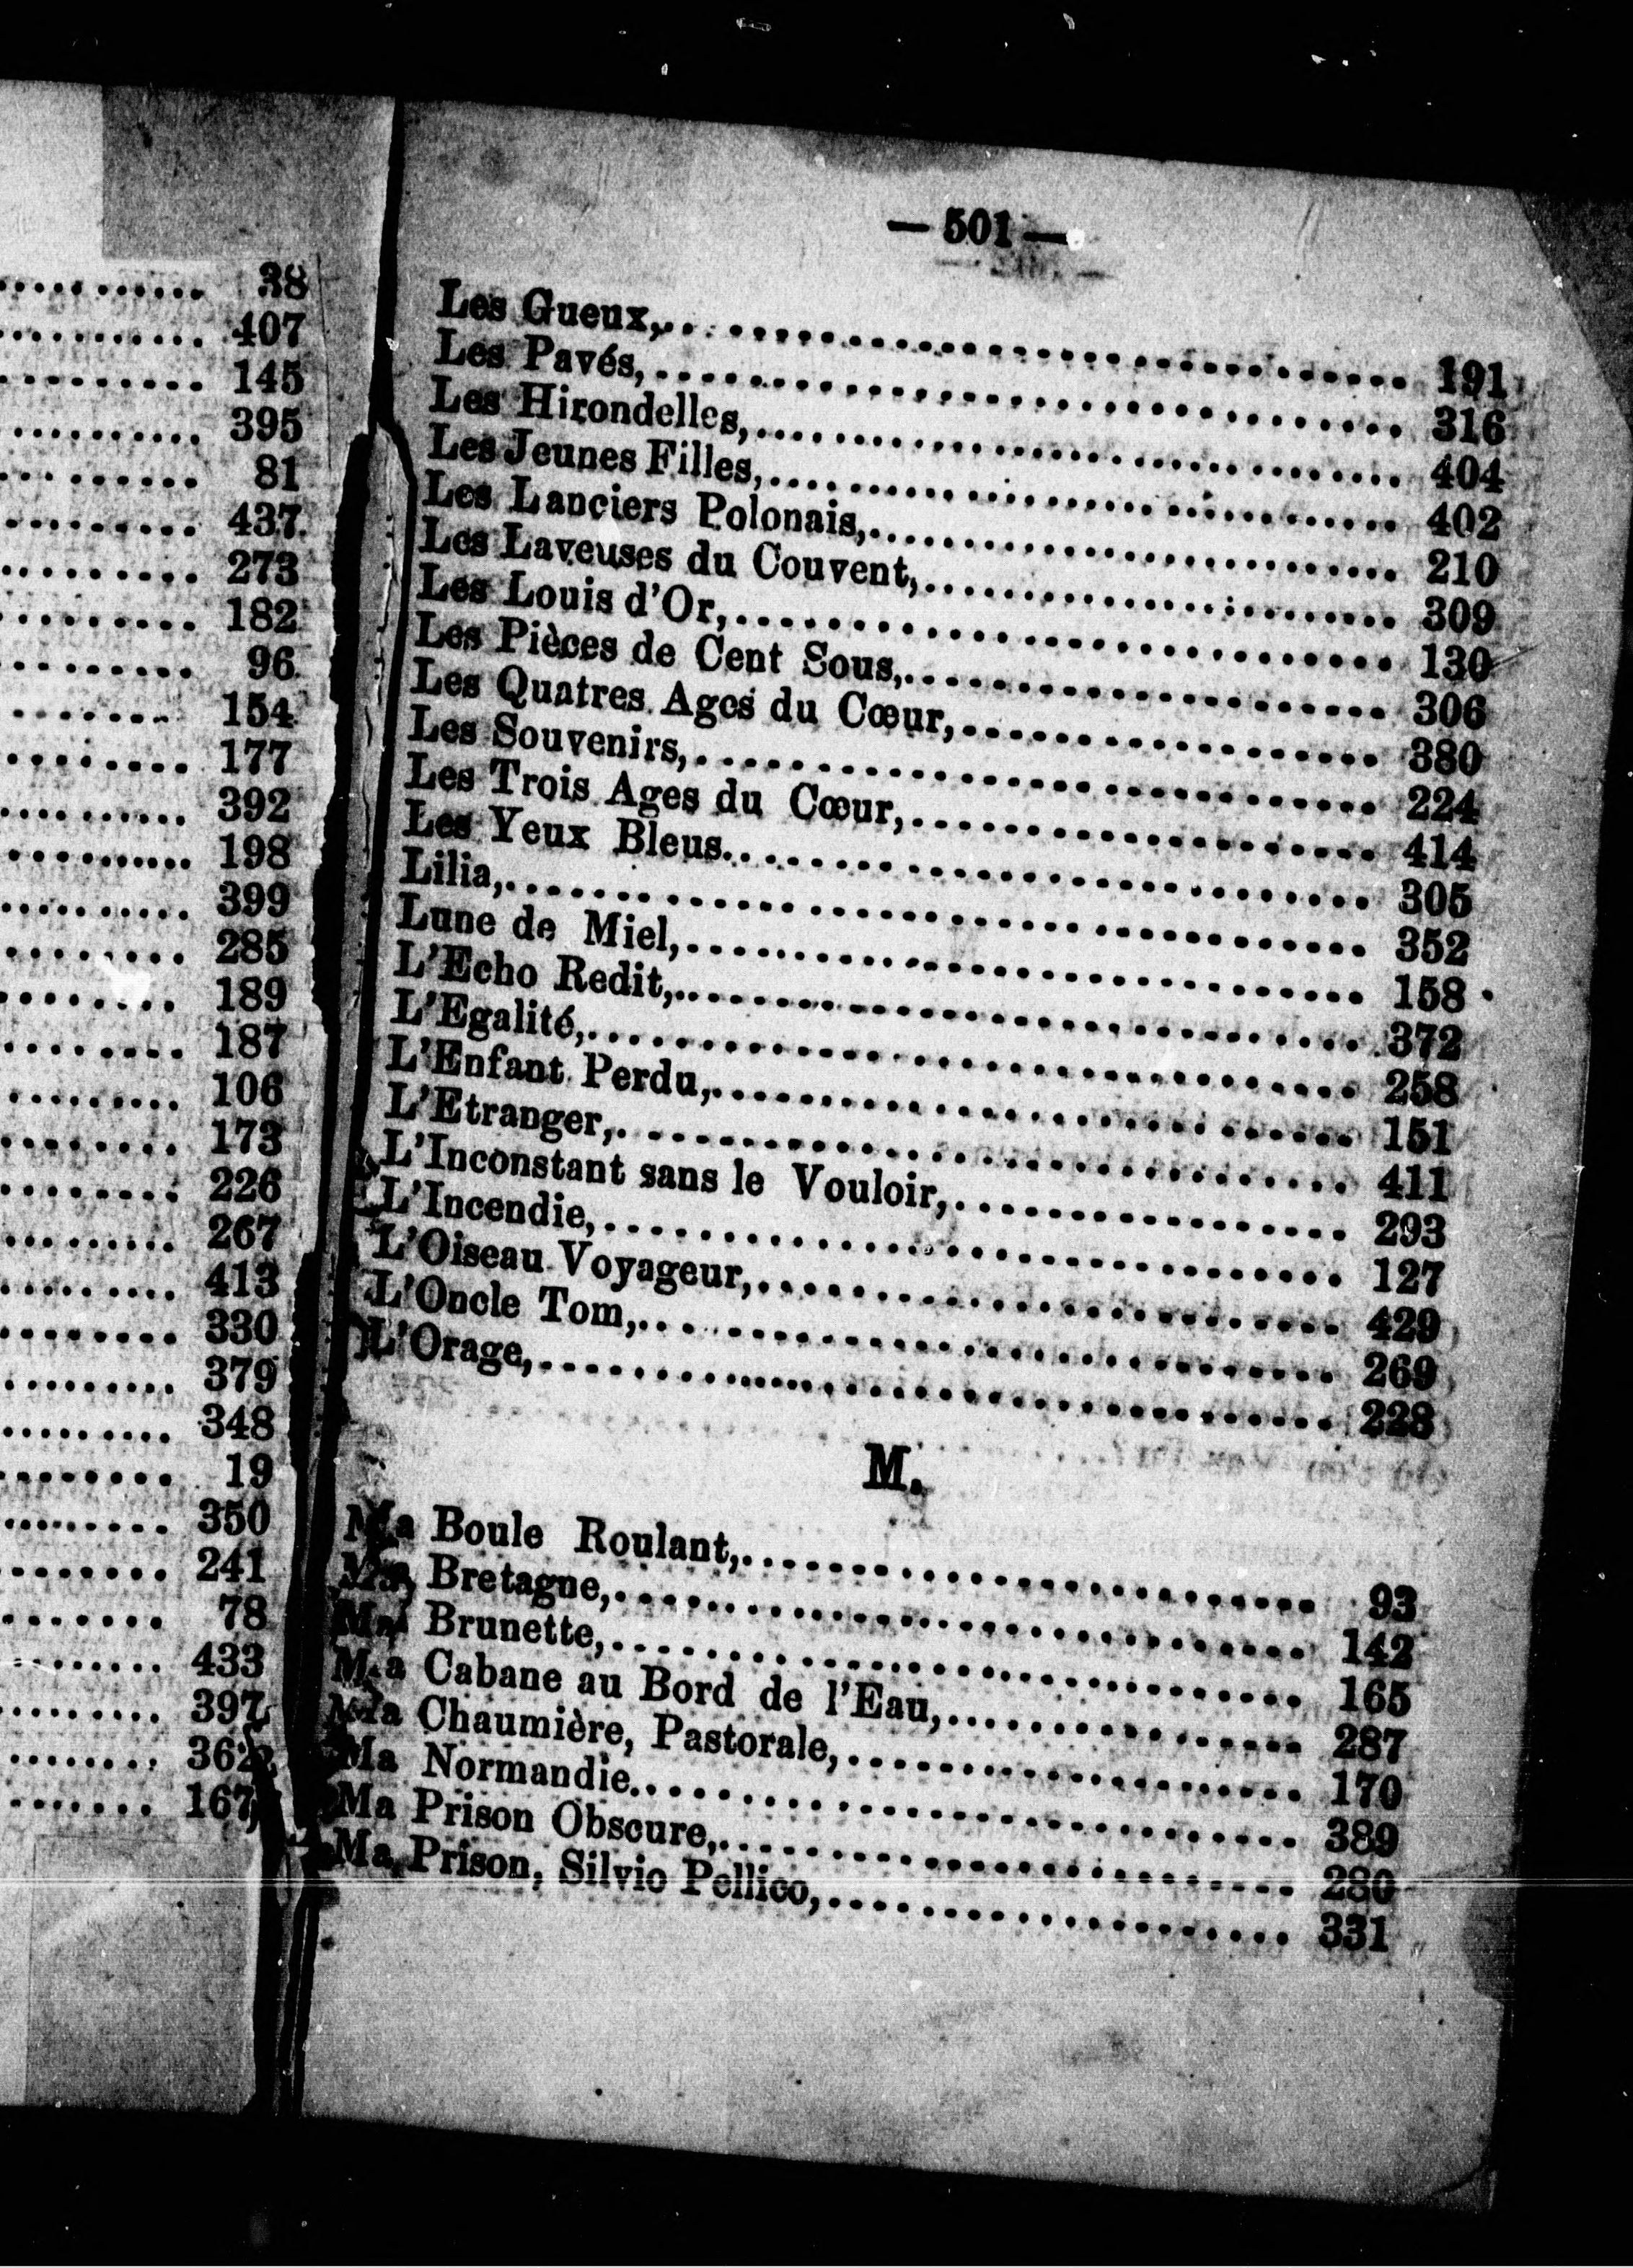 38
407
145
395
81
437
273
182
96
154
177
392
198
399
285
189
187
106
173
226
267
413
330
379
348
19
350
241
78
433
397
362
167
— 501 —
Les Gueux,.......... 191
Les Pavés,.......... 316
Les Hirondelles,.......... 404
Les Jeunes Filles,.......... 402
Les Lanciers Polonais,.......... 210
Les Laveuses du Couvent,.......... 309
Les Louis d'Or,.......... 130
Les Pièces de Cent Sous,.......... 306
Les Quatres Ages du Cœur,.......... 380
Les Souvenirs,.......... 224
Les Trois Ages du Cœur,.......... 414
Les Yeux Bleus.......... 305
Lilia,.......... 352
Lune de Miel,.......... 158
L'Echo Redit,.......... 372
L'Egalité,.......... 258
L'Enfant Perdu,.......... 151
L'Etranger,.......... 411
L'Inconstant sans le Vouloir,.......... 293
L'Incendie,.......... 127
L'Oiseau Voyageur,.......... 429
L'Oncle Tom,.......... 269
L'Orage,.......... 228
M.
Ma Boule Roulant,.......... 93
Ma Bretagne,.......... 142
Ma Brunette,.......... 165
Ma Cabane au Bord de l'Eau,.......... 287
Ma Chaumière, Pastorale,.......... 170
Ma Normandie.......... 389
Ma Prison Obscure,.......... 280
Ma Prison, Silvio Pellico,.......... 331